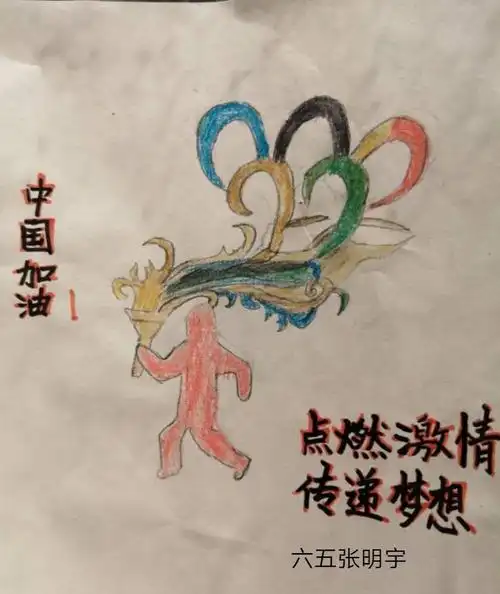 中国加油
点燃激情
传递梦想
六五张明宇